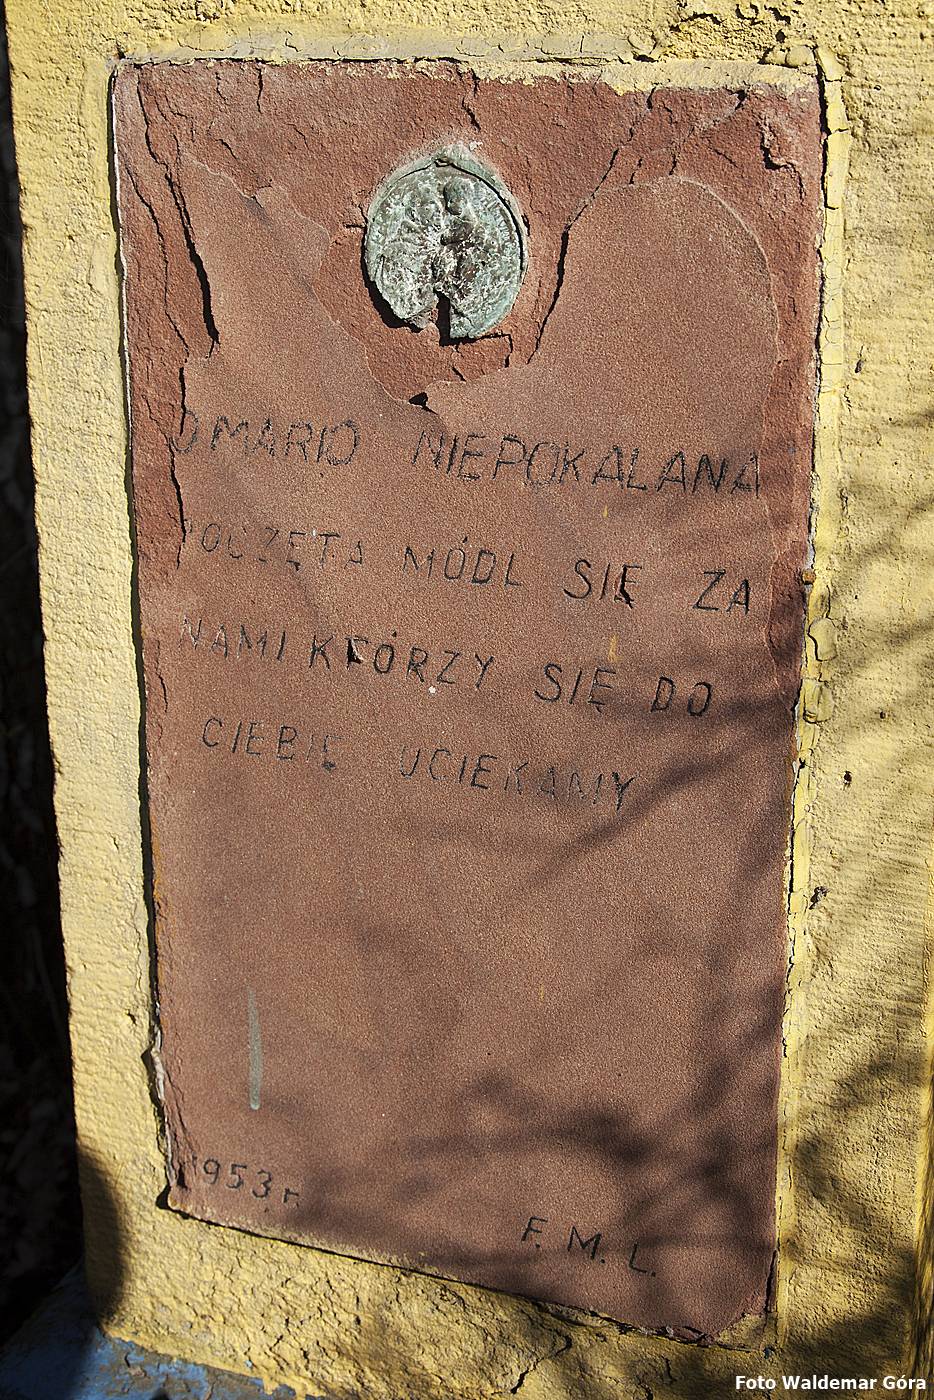 O MARIO NIEPOKALANA
POCZĘTA MÓDL SIĘ ZA
NAMI KTÓRZY SIĘ DO
CIEBIE UCIEKAMY
1953 r.
F. M. L.
Foto Waldemar Góra